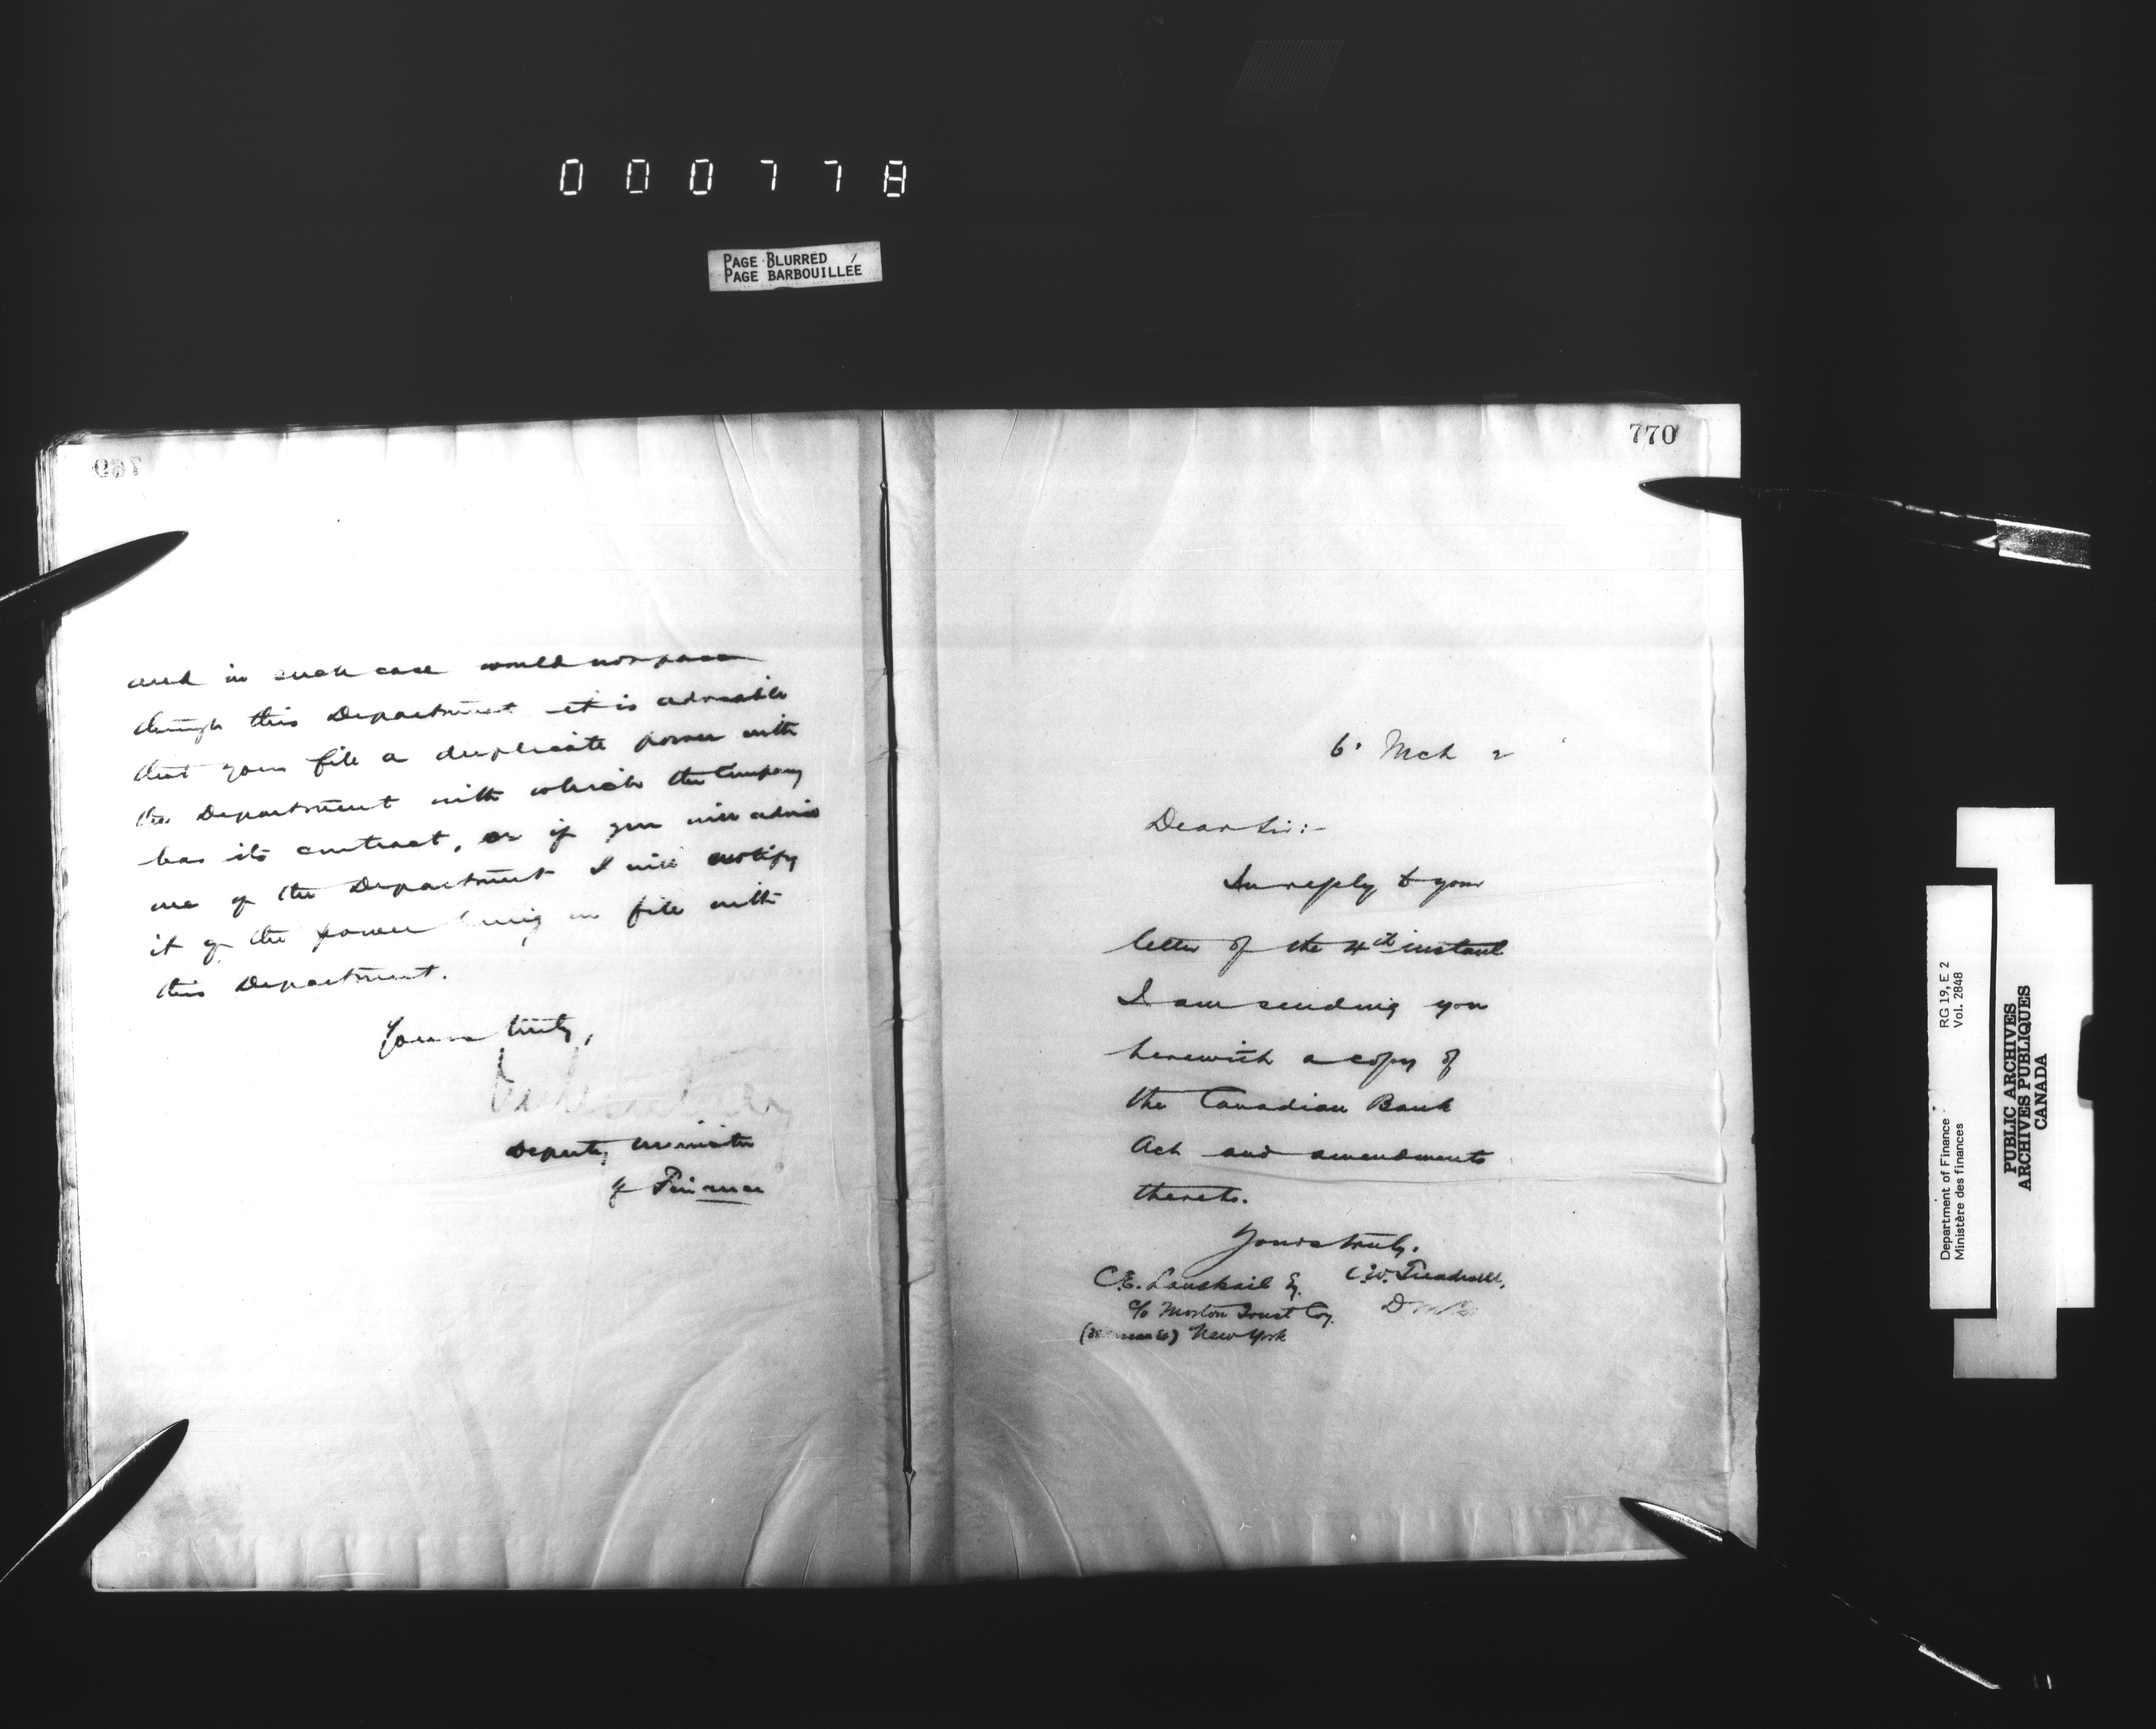 000778
PAGE BLURRED
PAGE BARBOUILLÉE
769
and in such case would not pass
through this Department it is advisable
that you file a duplicate power with
the Department with which the Company
has its contract, or if you will advise
me of the Department I will notify
it of the power being on file with
this Department.
Yours truly,
Deputy Minister
of Finance
770
6 Mch 2
Dear Sir:-
In reply to your
letter of the 4th instant
I am sending you
herewith a copy of
the Canadian Bank
Act and amendments
thereto.
Yours truly.
C.W. Treadwell,
C.E. Lanskail Eq.
c/o Morton Trust Coy.
New York
Department of Finance
Ministère des finances
RG 19, E 2
Vol. 2848
PUBLIC ARCHIVES
ARCHIVES PUBLIQUES
CANADA